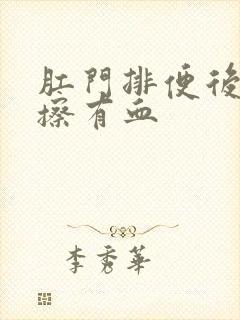 肛門排便後
擦有血
李秀華